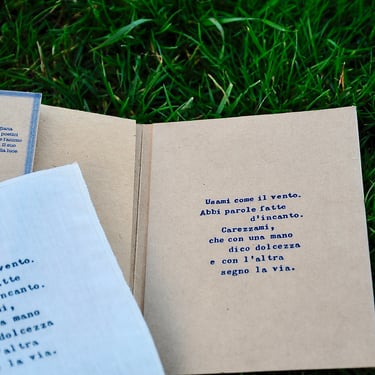 Usami come il vento.
Abbi parole fatte
d'incanto.
Carezzami,
che con una mano
dico dolcezza
e con l'altra
segno la via.
vento.
fatte
incanto.
mi,
a mano
dolcezza
altra
la via.
poetici
il suo
luce